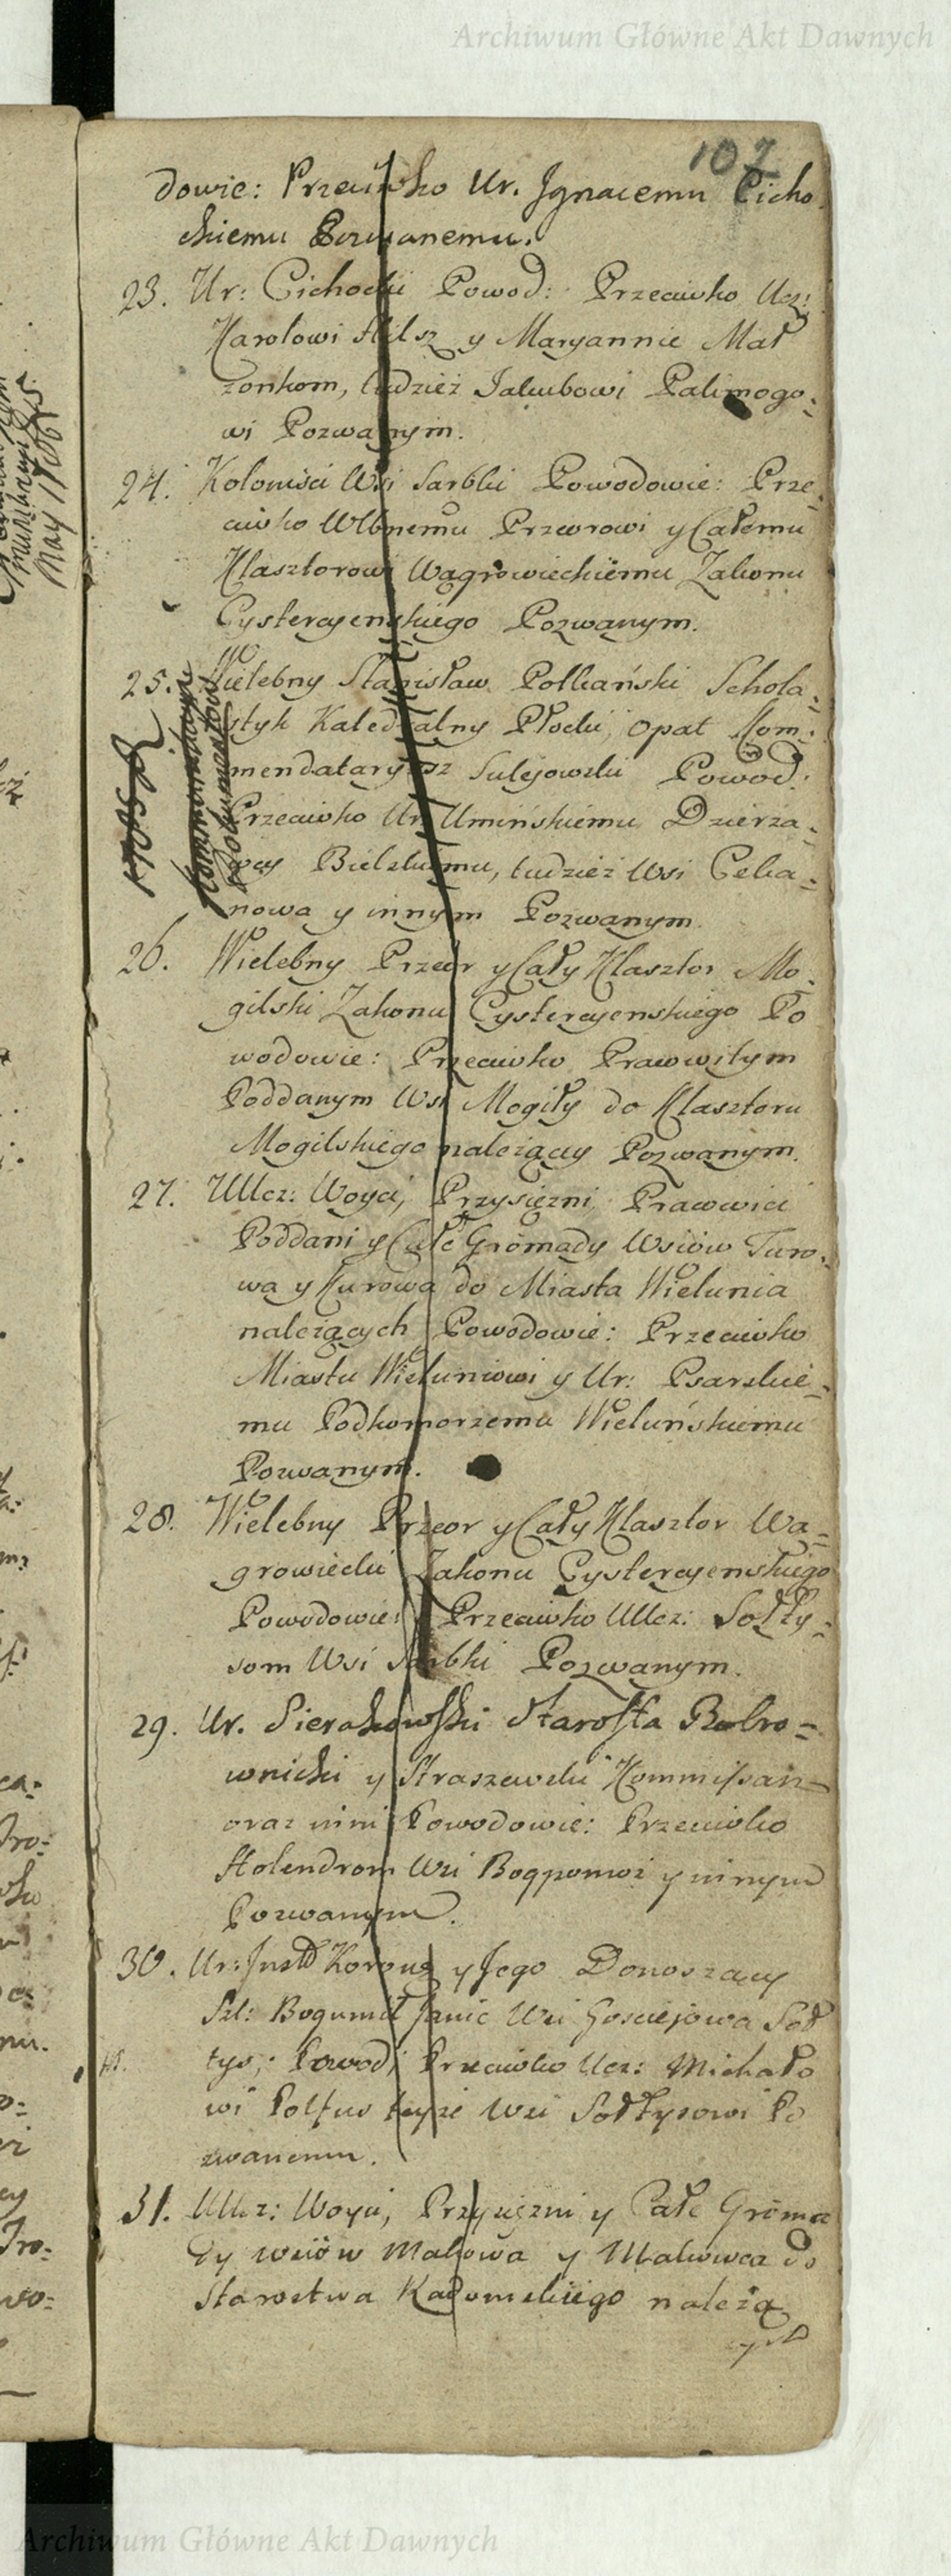 Archiwum Główne Akt Dawnych
107
dowie: Przeciwko Ur. Jgnacemu Cicho
ckiemu Pozwanemu.
23. Ur: Cichocki Powod: Przeciwko Ucz:
Karolowi Hilsz y Maryannie Mał
żonkom, tudzież Jakubowi Palimogo-
wi Pozwanym.
24. Koloniści Wsi Sarbki Powodowie: Prze-
ciwko Wlbnemu Przeorowi y Całemu
Klasztorowi Wągrowieckiemu Zakonu
Cystercyenskiego Pozwanym.
25. Wielebny Stanisław Polkański Schola-
styk Katedralny Płocki, Opat Kom-
mendataryusz Sulejowski Powod:
Przeciwko Ur: Umińskiemu Dzierża-
wcy Bielskiemu, tudzież Wsi Ceka-
nowa y innym Pozwanym
Kommunikacya
Dokumentow
26. Wielebny Przeor y Cały Klasztor Mo-
gilski Zakonu Cystercyenskiego Po
wodowie: Przeciwko Prawowitym
Poddanym Wsi Mogiły do Klasztoru
Mogilskiego należący Pozwanym.
27. UUcz: Woyci, Przysiężni Prawowici
Poddani y Całe Gromady Wsiów Turo-
wa y Kurowa do Miasta Wielunia
należących Powodowie: Przeciwko
Miastu Wieluniowi y Ur: Psarskie-
mu Podkomorzemu Wieluńskiemu
Pozwanym.
28. Wielebny Przeor y Cały Klasztor Wą-
growiecki Zakonu Cystercyenskiego
Powodowie: Przeciwko UUcz: Sołty-
som Wsi Sarbki Pozwanym.
29. Ur. Sierakowski Starosta Bobro-
wnicki y Straszewski Kommissarz
oraz inni Powodowie: Przeciwko
Holendrom Wsi Bogpomoż y innym
Pozwanym.
30. Ur: Inst Korony y Jego Donoszący
Szl: Bogumił Janic Wsi Gosciejowa Soł
tys, Powod: Przeciwko Ucz: Michało
wi Poltuw teyże Wsi Sołtysowi Po
zwanemu.
31. UUcz: Woyci, Przysiężni y Całe Groma
dy wsiów Makowa y Makowca do
Starostwa Radomskiego należą
cych
Archiwum Główne Akt Dawnych